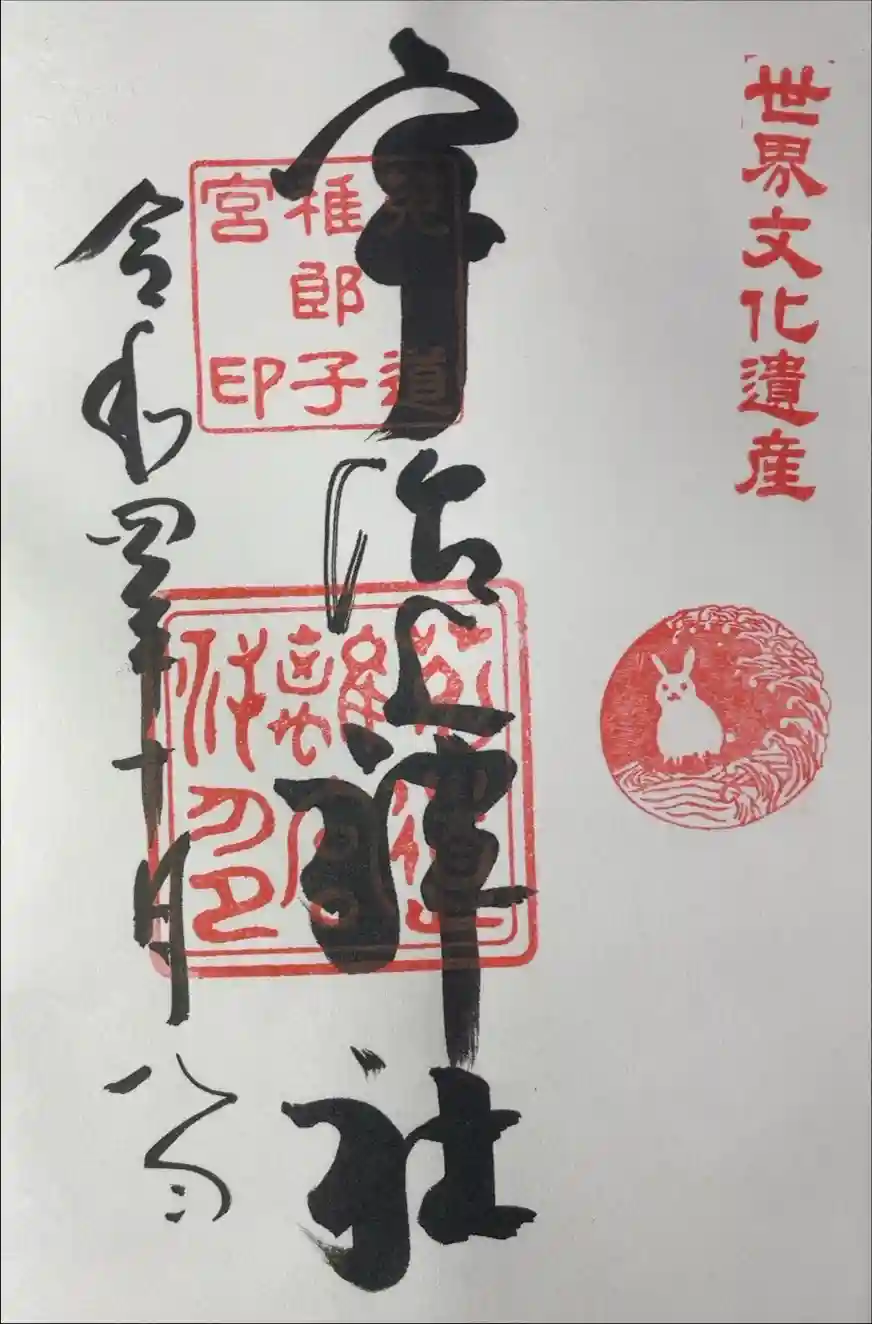 世界文化遺産
宇治上神社
菟道
稚郎子
宮印
令和四年十月八日